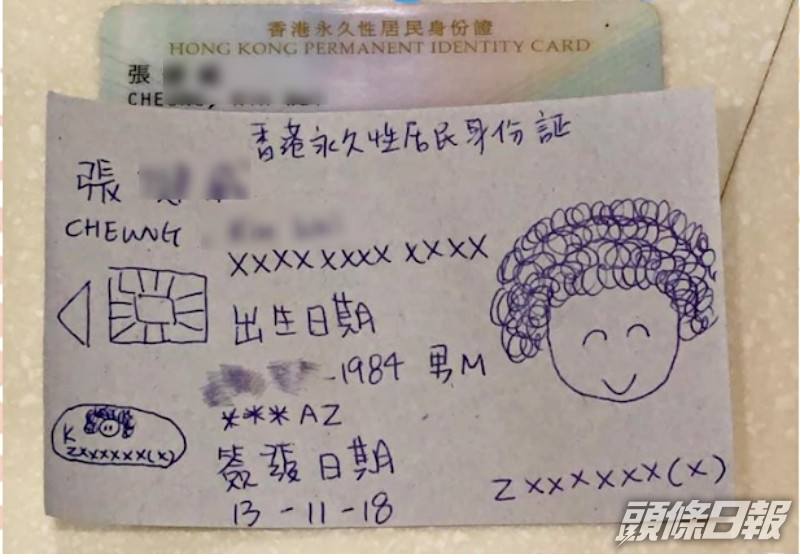 香港永久性居民身份證
HONG KONG PERMANENT IDENTITY CARD
張
CHEUNG,
香港永久性居民身份証
張
CHEUNG,
XXXX XXXX XXXX
出生日期
-1984 男M
***AZ
簽發日期
13-11-18
K
ZXXXXXX(X)
ZXXXXXX(X)
頭條日報